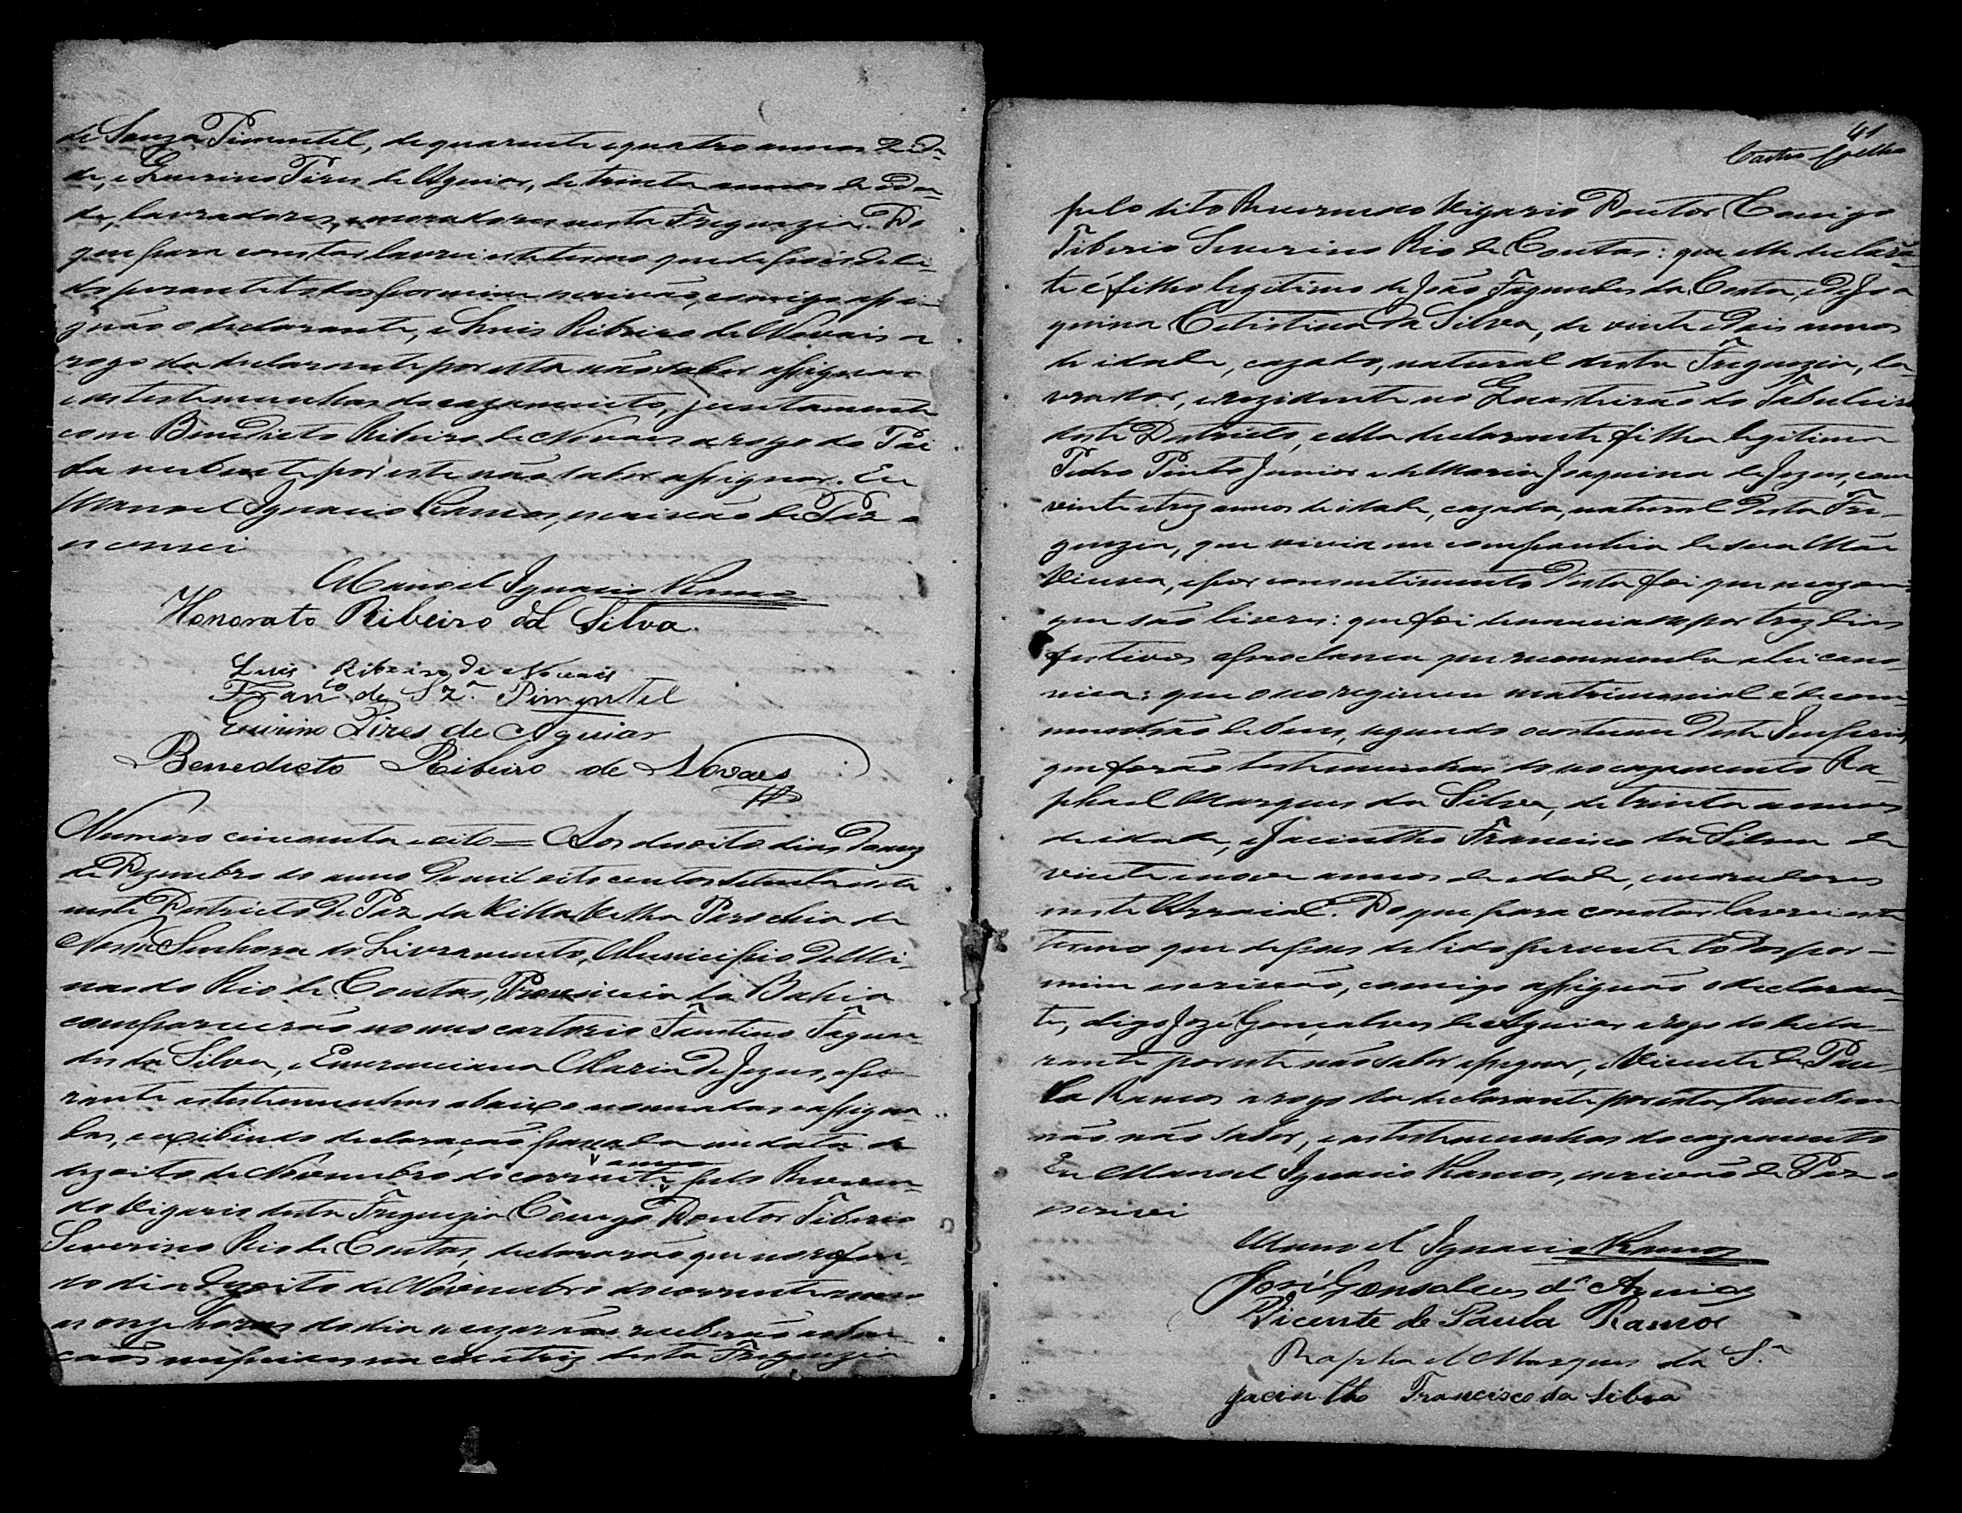 de Souza Pimentel, de quarenta e quatro annos de ida-
de, e Quirino Pires de Aguiar, de trinta annos de ida-
de, lavradores, e moradores nesta Freguezia. Do
que para constar lavrei este termo que depois de li-
do perante todos por mim escrivão, comigo assi-
gnão o declarante, e Luis Ribeiro de Novais a
rogo da declarante por esta não saber assignar
e as testemunhas do cazamento, juntamente
com Benedicto Ribeiro de Novaes a rogo do Pai
da nubente por este não saber assignar. Eu
Manoel Ignacio Ramos, escrivão de Paz o
escrevi
Manoel Ignacio Ramos
Honorato Ribeiro da Silva
Luis Ribeiro de Novais
Franco de Sza Pimentel
Quirino Pires de Aguiar
Benedicto Ribeiro de Novaes
Numero cincoenta e oito = Aos desoito dias do mez
de Dezembro do anno de mil oito centos setenta e sete
neste Destricto de Paz da Villa Velha Parochia de
Nossa Senhora do Livramento, Municipio de Mi-
nas do Rio de Contas, Provincia da Bahia
comparecerão no meo cartorio Faustino Fagun-
des da Silva, e Emerenciana Maria de Jezus, e pe-
rante as testemunhas abaixo nomeadas e assigna-
das, exibindo declaração passada em data de
dezoito de Novembro do corrente anno pelo Reveren-
do Vigario desta Freguezia Conego Doutor Tiberio
Severino Rio de Contas, declararão que no referi-
do dia dezoito de Novembro do corrente anno
as onze horas do dia se cazarão e receberão as ben-
çaõs nupciaes na matriz desta Freguezia
41
Castro Coelho
pelo dito Reverendo Vigario Doutor Conego
Tiberio Severino Rio de Contas: que elle declaran-
te é filho legitimo de João Fagundes da Costa, e de Joa
quina Celistina da Silva, de vinte e dois annos
de idade, cazado, natural desta Freguezia, la-
vrador, e rezidente no Quarteirão do Tabuleiro
deste Destricto, e ella declarante filha legitima
Pedro Pinto Junior e de Maria Joaquina de Jezus, com
vinte e trez annos de idade, cazada, natural desta Fre-
guezia, que vivia em companhia de sua Mãe
Viuva, e por consentimento desta foi que se cazou
que são livres: que foi denunciada por trez dias
festivos e proclama que recommenda a lei cano-
nica: que o seo regimen matrimonial é de com-
munhão de bens, segundo o costume deste Imperio,
que forão testemunhas do seo cazamento Ra-
phael Marques da Silva, de trinta annos
de idade, e Jacintho Francisco da Silva de
vinte e nove annos de idade, moradores
neste Arraial. Do que para constar lavrei este
termo que depois de lido perante todos por
mim escrivão, comigo assignão o declaran-
te, digo José Gonçalves de Aguiar a rogo do decla-
rante por este não saber assignar, e Vicente de Pau-
la Ramos a rogo da declarante por esta tambem
não não saber, e as testemunhas do cazamento
Eu Manoel Ignacio Ramos, escrivão de Paz o
escrevi
Manoel Ignacio Ramos
José Gonsalves de Aguiar
Vicente de Paula Ramos
Raphael Marques da Sa
Jacintho Francisco da Silva